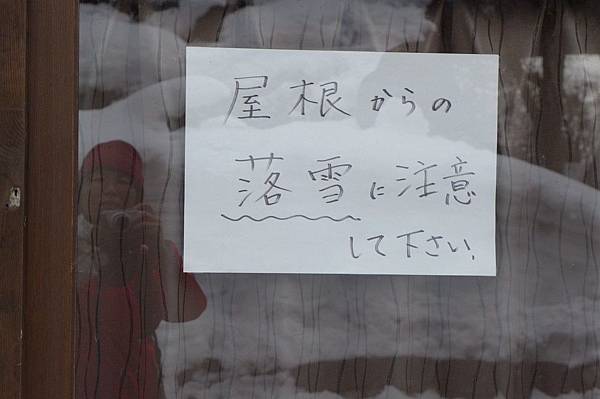 屋根からの
落雪に注意
して下さい.